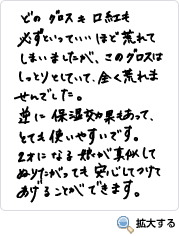 どのグロスも口紅も
必ずといっていいほど荒れて
しまいましたが、このグロスは
しっとりとしていて、全く荒れま
せんでした。
逆に保湿効果もあって、
とても使いやすいです。
2才になる娘が真似して
ぬりたがっても安心してつけて
あげることができます。
拡大する